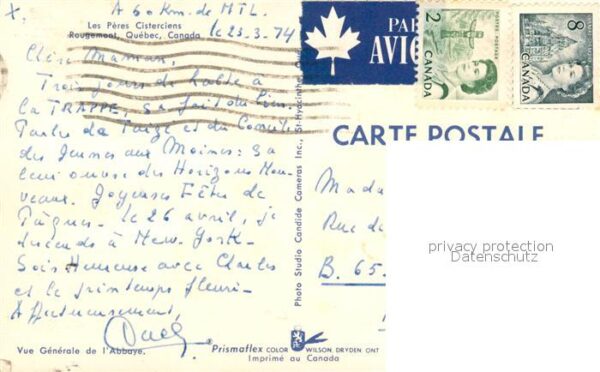 X. A 60 Km. de MTL.
Les Pères Cisterciens
Rougemont, Québec, Canada
le 23.3.74
Chère Maman,
Trois jours de halte à
la TRAPPE, sa fait du bien.
Parler de Taizé et du Concile
des Jeunes aux Moines: sa
leur ouvre des Horizons Nou-
veaux. Joyeuses Fêtes de
Pâques. Le 26 avril, je
descends à New-York-
Sois Heureuse avec Charles
et le printemps fleuri-
Affectueusement,
Vue Générale de l'Abbaye.
Photo Studio Candide Cameras Inc., St-Hyacinthe,
PAR
AVION
2
CANADA
POSTES POSTAGE
8
CANADA
CARTE POSTALE
Mada
Rue de
B. 65.
privacy protection
Datenschutz
Prismaflex COLOR WILSON, DRYDEN ONT
Imprimé au Canada